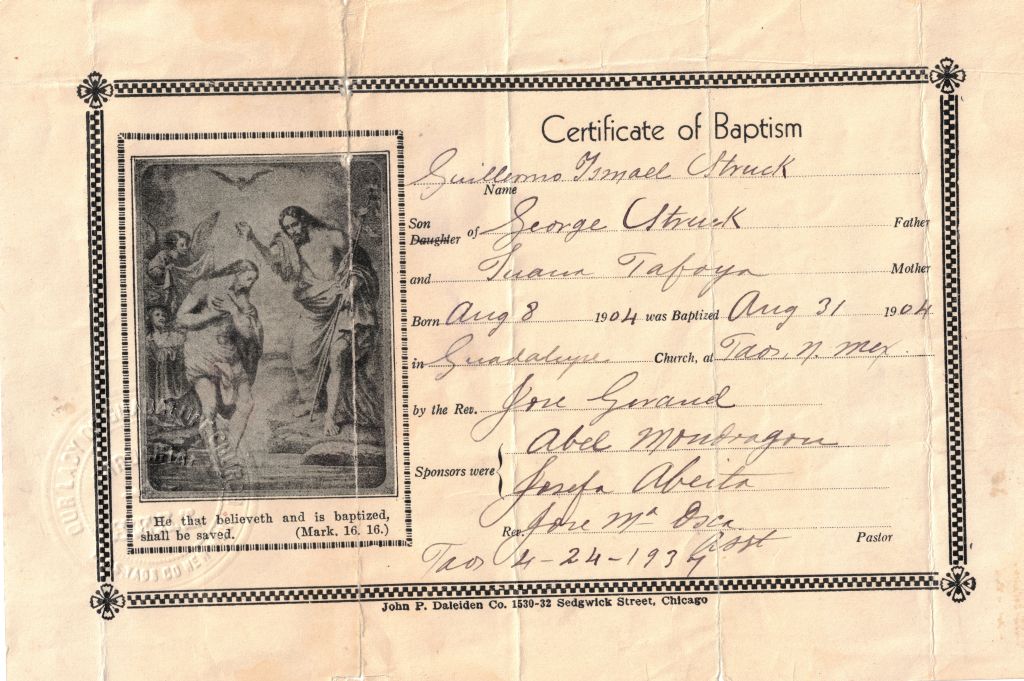 Certificate of Baptism
Guillermo Ismael Struck
Name
Son
Daughter of George Struck Father
and Juana Tafoya Mother
Born Aug 8 1904 was Baptized Aug 31 1904
in Guadalupe Church, at Taos N. Mex.
by the Rev. Jose Giraud
Sponsors were { Abel Mondragon
Josefa Abeita
Rev. Jose Ma Pastor
Taos 4-24-193
He that believeth and is baptized,
shall be saved. (Mark. 16. 16.)
OUR LADY OF
TAOS CO NEW
John P. Daleiden Co. 1530-32 Sedgwick Street, Chicago